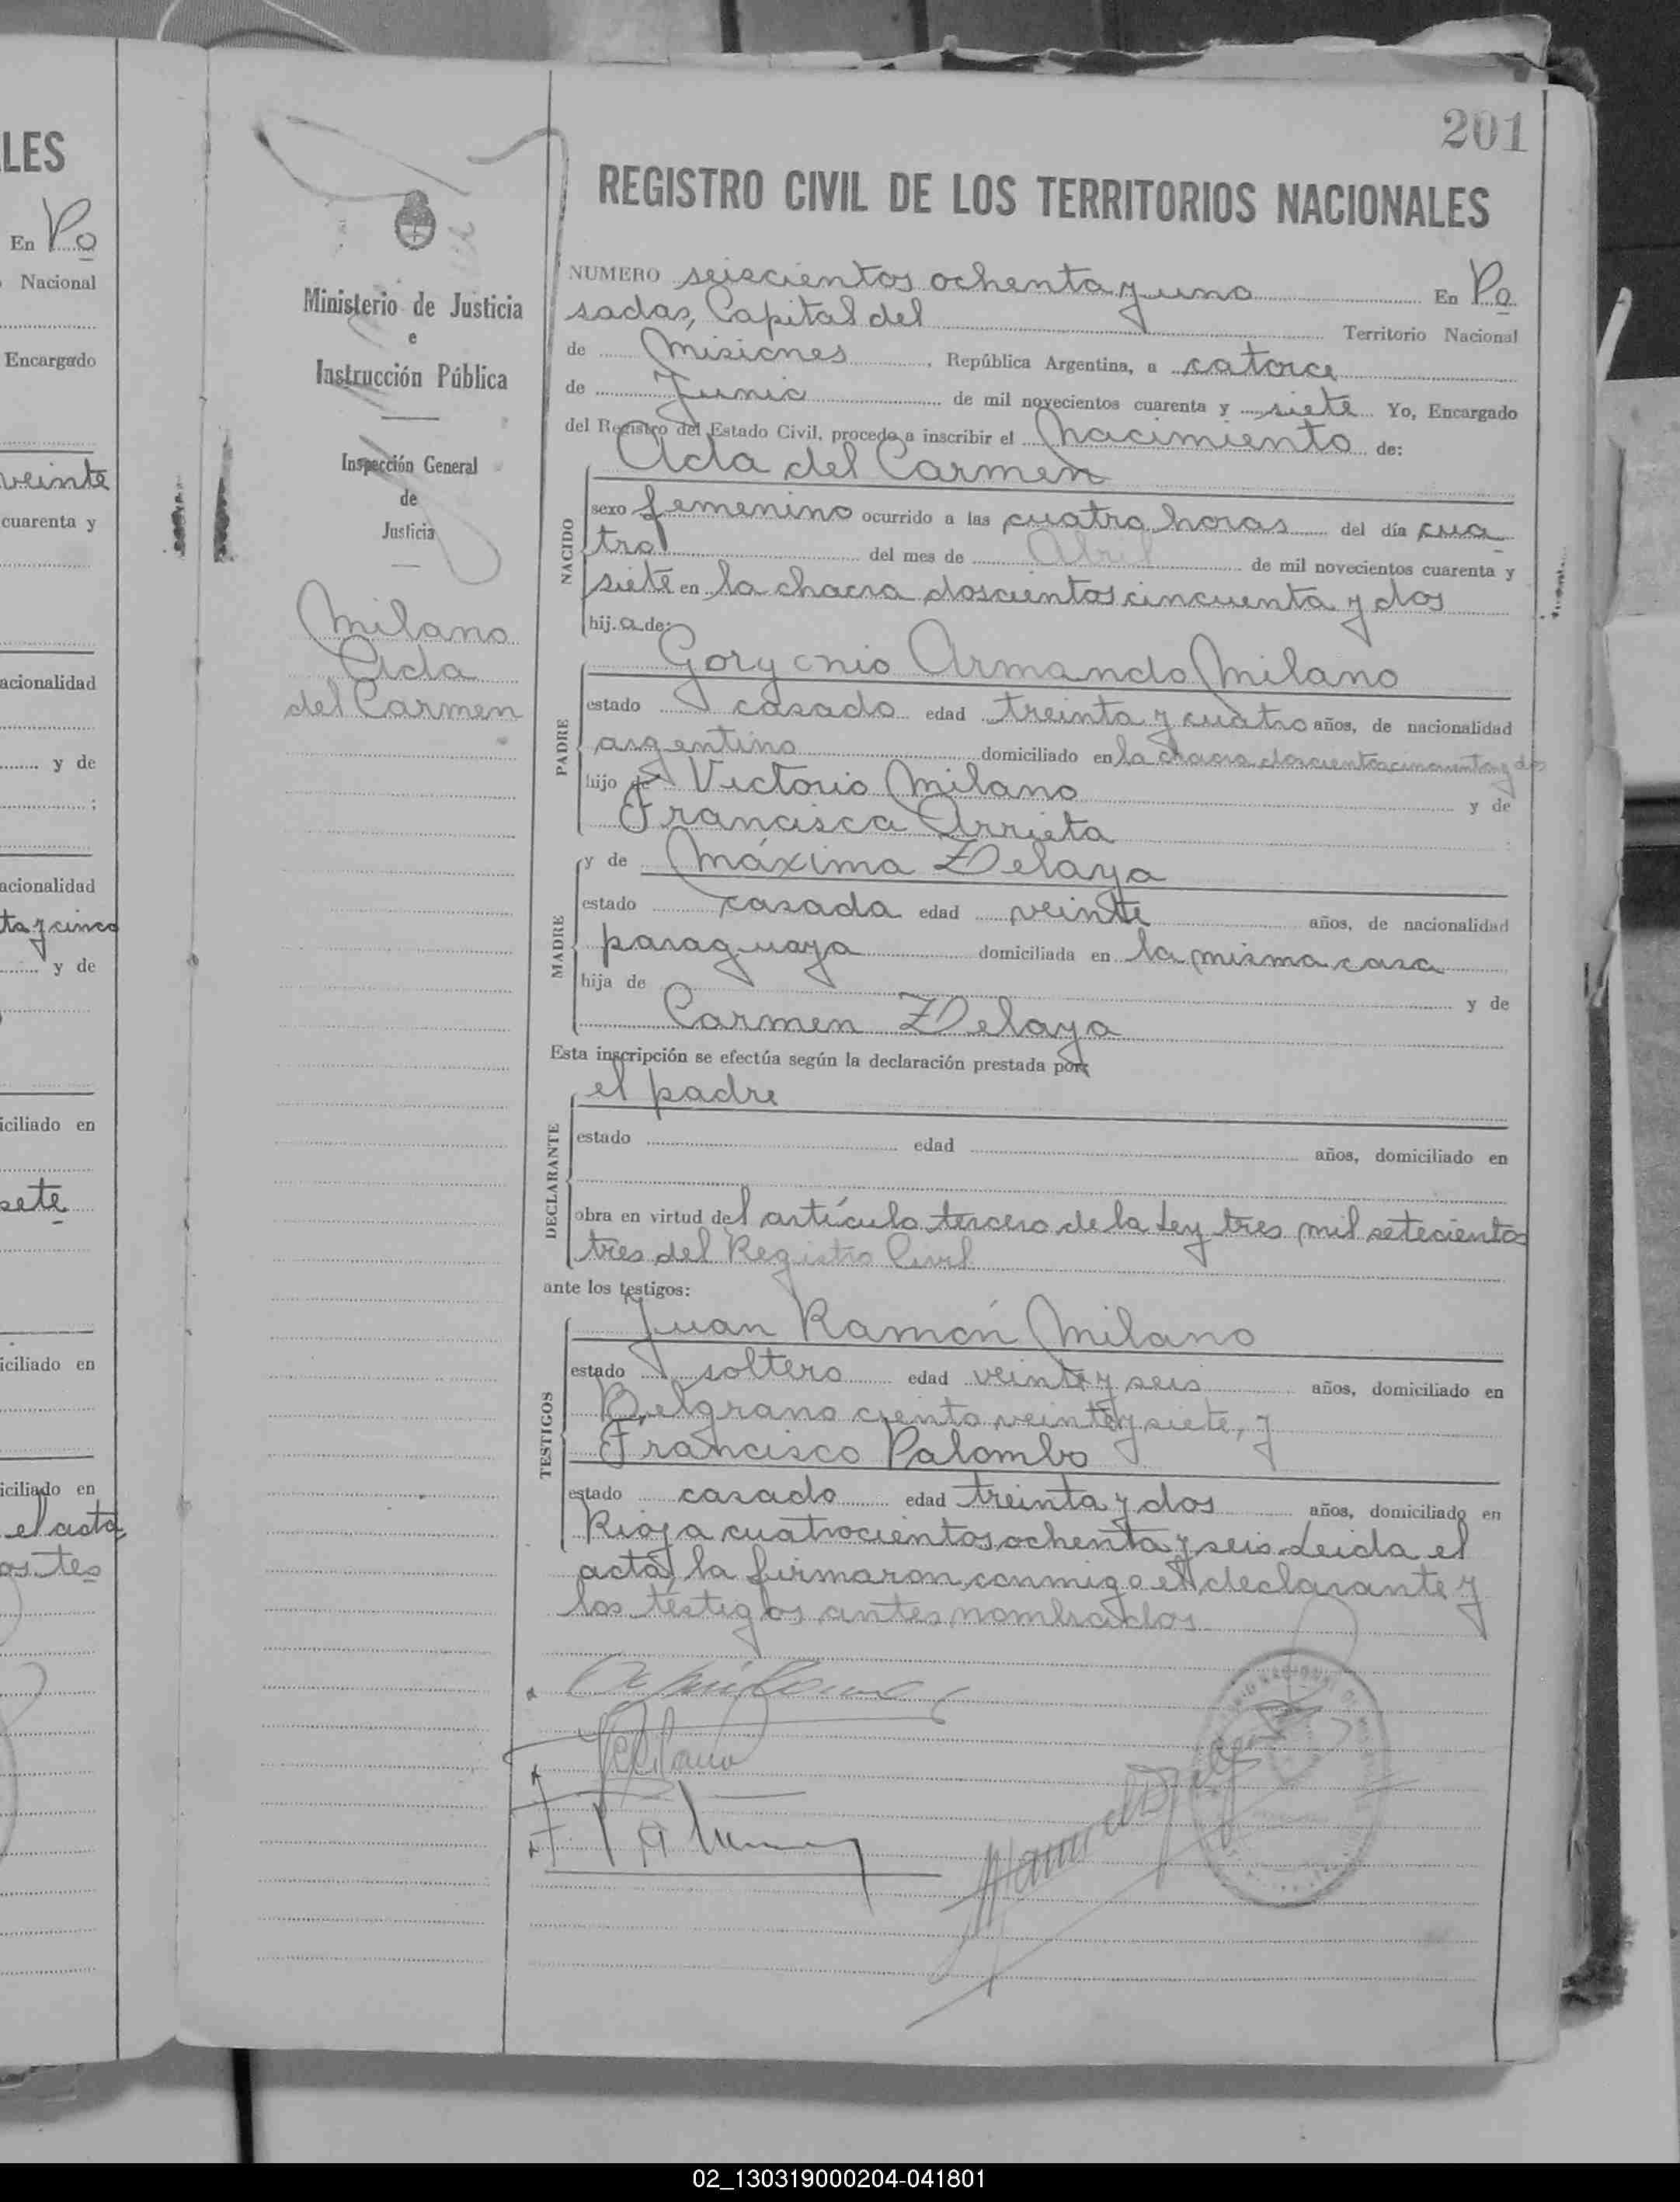 LES
En Po
Nacional
Encargado
veinte
cuarenta y
acionalidad
y de
;
acionalidad
ta y cinco
y de
iciliado en
sete
iciliado en
iciliado en
el acta
os tes
201
Ministerio de Justicia
e
Instrucción Pública
Inspección General
de
Justicia
Milano
Aida
del Carmen
REGISTRO CIVIL DE LOS TERRITORIOS NACIONALES
NUMERO seiscientos ochenta y uno En Po
sadas, Capital del Territorio Nacional
de Misiones, República Argentina, a catorce
de Junio de mil novecientos cuarenta y siete Yo, Encargado
del Registro del Estado Civil, procedo a inscribir el nacimiento de:
Aida del Carmen
NACIDO
sexo femenino ocurrido a las cuatro horas del día cua
tro del mes de Abril de mil novecientos cuarenta y
siete en la chacra doscientos cincuenta y dos
hij.a de:
Armando Milano
PADRE
estado casado edad treinta y cuatro años, de nacionalidad
argentino domiciliado en la chacra doscientos cincuenta y dos
hijo de Victorio Milano y de
Francisca Arrieta
MADRE
y de Máxima Zelaya
estado casada edad veinte años, de nacionalidad
paraguaya domiciliada en la misma casa
hija de y de
Carmen Zelaya
Esta inscripción se efectúa según la declaración prestada por:
el padre
DECLARANTE
estado edad años, domiciliado en
obra en virtud del artículo tercero de la Ley tres mil setecientos
tres del Registro Civil
ante los testigos:
Juan Ramón Milano
TESTIGOS
estado soltero edad veinte y seis años, domiciliado en
Belgrano ciento veinte y siete, y
Francisco Palombo
estado casado edad treinta y dos años, domiciliado en
Rioja cuatrocientos ochenta y seis. Leida el
acta, la firmaron conmigo el declarante y
los testigos antes nombrados
02_130319000204-041801